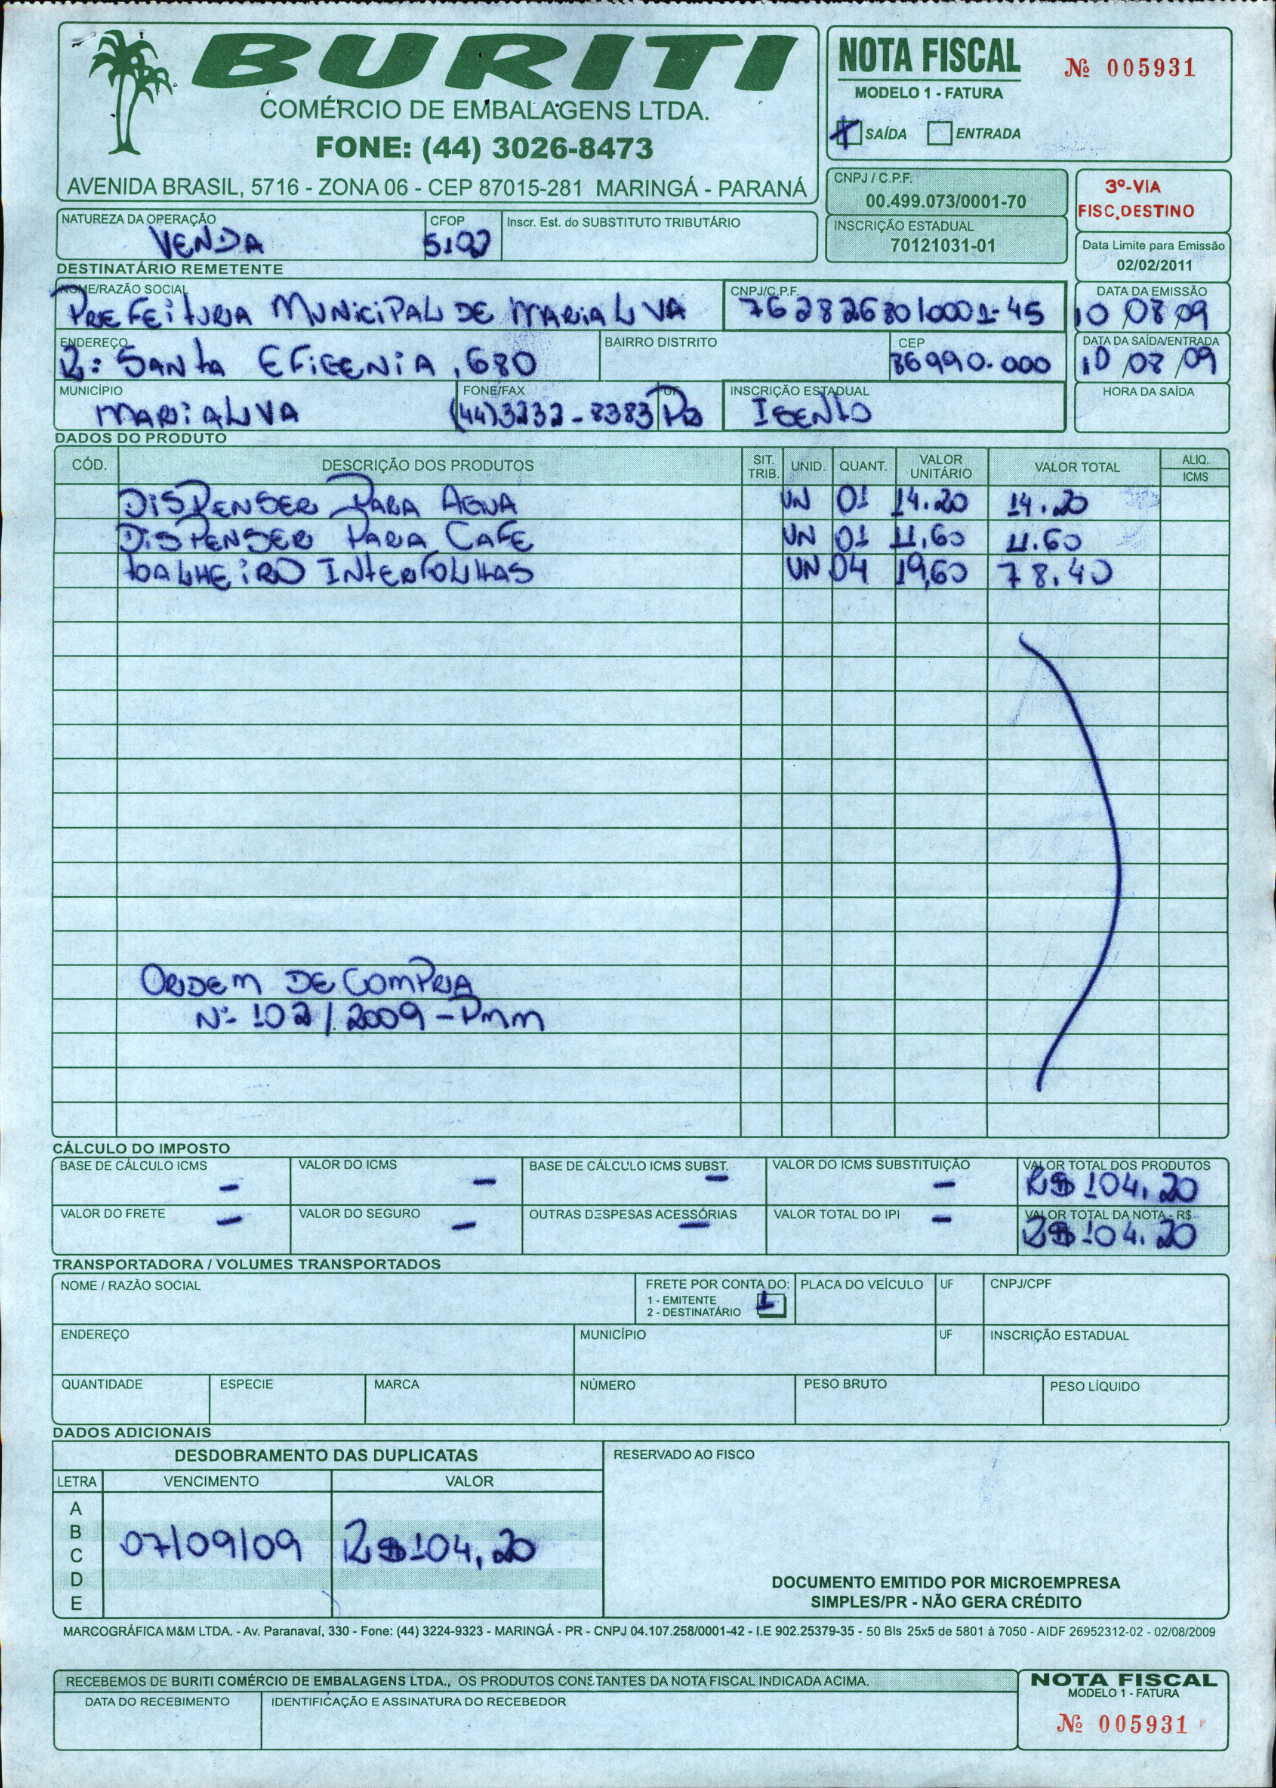 BURITI
COMÉRCIO DE EMBALAGENS LTDA.
FONE: (44) 3026-8473
AVENIDA BRASIL, 5716 - ZONA 06 - CEP 87015-281 MARINGÁ - PARANÁ
NOTA FISCAL
Nº 005931
MODELO 1 - FATURA
X SAÍDA ENTRADA
CNPJ / C.P.F.
00.499.073/0001-70
INSCRIÇÃO ESTADUAL
70121031-01
3ª-VIA
FISC,DESTINO
Data Limite para Emissão
02/02/2011
NATUREZA DA OPERAÇÃO CFOP Inscr. Est. do SUBSTITUTO TRIBUTÁRIO
VENDA
DESTINATÁRIO REMETENTE
NOME/RAZÃO SOCIAL CNPJ/C.P.F. DATA DA EMISSÃO
PREFEITURA MUNICIPAL DE MARIALVA 76282680/0001-45 10 08 09
ENDEREÇO BAIRRO DISTRITO CEP DATA DA SAÍDA/ENTRADA
R: SANTA EFIGENIA, 680 86990.000 10 /08 /09
MUNICÍPIO FONE/FAX UF INSCRIÇÃO ESTADUAL HORA DA SAÍDA
MARIALVA (44)3232-8383 PR ISENTO
DADOS DO PRODUTO
CÓD. DESCRIÇÃO DOS PRODUTOS SIT. TRIB. UNID. QUANT. VALOR UNITÁRIO VALOR TOTAL ALIQ. ICMS
DISPENSER PARA AGUA UN 01 14.20 14.20
DISPENSER PARA CAFE UN 01 11,60 11.60
TOALHEIRO INTERFOLHAS UN 04 19,60 78.40
ORDEM DE COMPRA
Nº- 102/2009-PMM
CÁLCULO DO IMPOSTO
BASE DE CÁLCULO ICMS VALOR DO ICMS BASE DE CÁLCULO ICMS SUBST. VALOR DO ICMS SUBSTITUIÇÃO VALOR TOTAL DOS PRODUTOS
- - - - R$ 104,20
VALOR DO FRETE VALOR DO SEGURO OUTRAS DESPESAS ACESSÓRIAS VALOR TOTAL DO IPI VALOR TOTAL DA NOTA - R$
- - - - R$ 104.20
TRANSPORTADORA / VOLUMES TRANSPORTADOS
NOME / RAZÃO SOCIAL FRETE POR CONTA DO: PLACA DO VEÍCULO UF CNPJ/CPF
1 - EMITENTE
2 - DESTINATÁRIO 1
ENDEREÇO MUNICÍPIO UF INSCRIÇÃO ESTADUAL
QUANTIDADE ESPECIE MARCA NÚMERO PESO BRUTO PESO LÍQUIDO
DADOS ADICIONAIS
DESDOBRAMENTO DAS DUPLICATAS RESERVADO AO FISCO
LETRA VENCIMENTO VALOR
A
B
C 07/09/09 R$104,20
D
E
DOCUMENTO EMITIDO POR MICROEMPRESA
SIMPLES/PR - NÃO GERA CRÉDITO
MARCOGRÁFICA M&M LTDA. - Av. Paranavaí, 330 - Fone: (44) 3224-9323 - MARINGÁ - PR - CNPJ 04.107.258/0001-42 - I.E 902.25379-35 - 50 Bls 25x5 de 5801 à 7050 - AIDF 26952312-02 - 02/08/2009
RECEBEMOS DE BURITI COMÉRCIO DE EMBALAGENS LTDA., OS PRODUTOS CONSTANTES DA NOTA FISCAL INDICADA ACIMA.
DATA DO RECEBIMENTO IDENTIFICAÇÃO E ASSINATURA DO RECEBEDOR
NOTA FISCAL
MODELO 1 - FATURA
Nº 005931